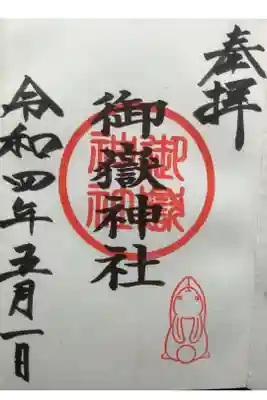 奉拝
御嶽神社
御嶽神社
令和四年五月一日